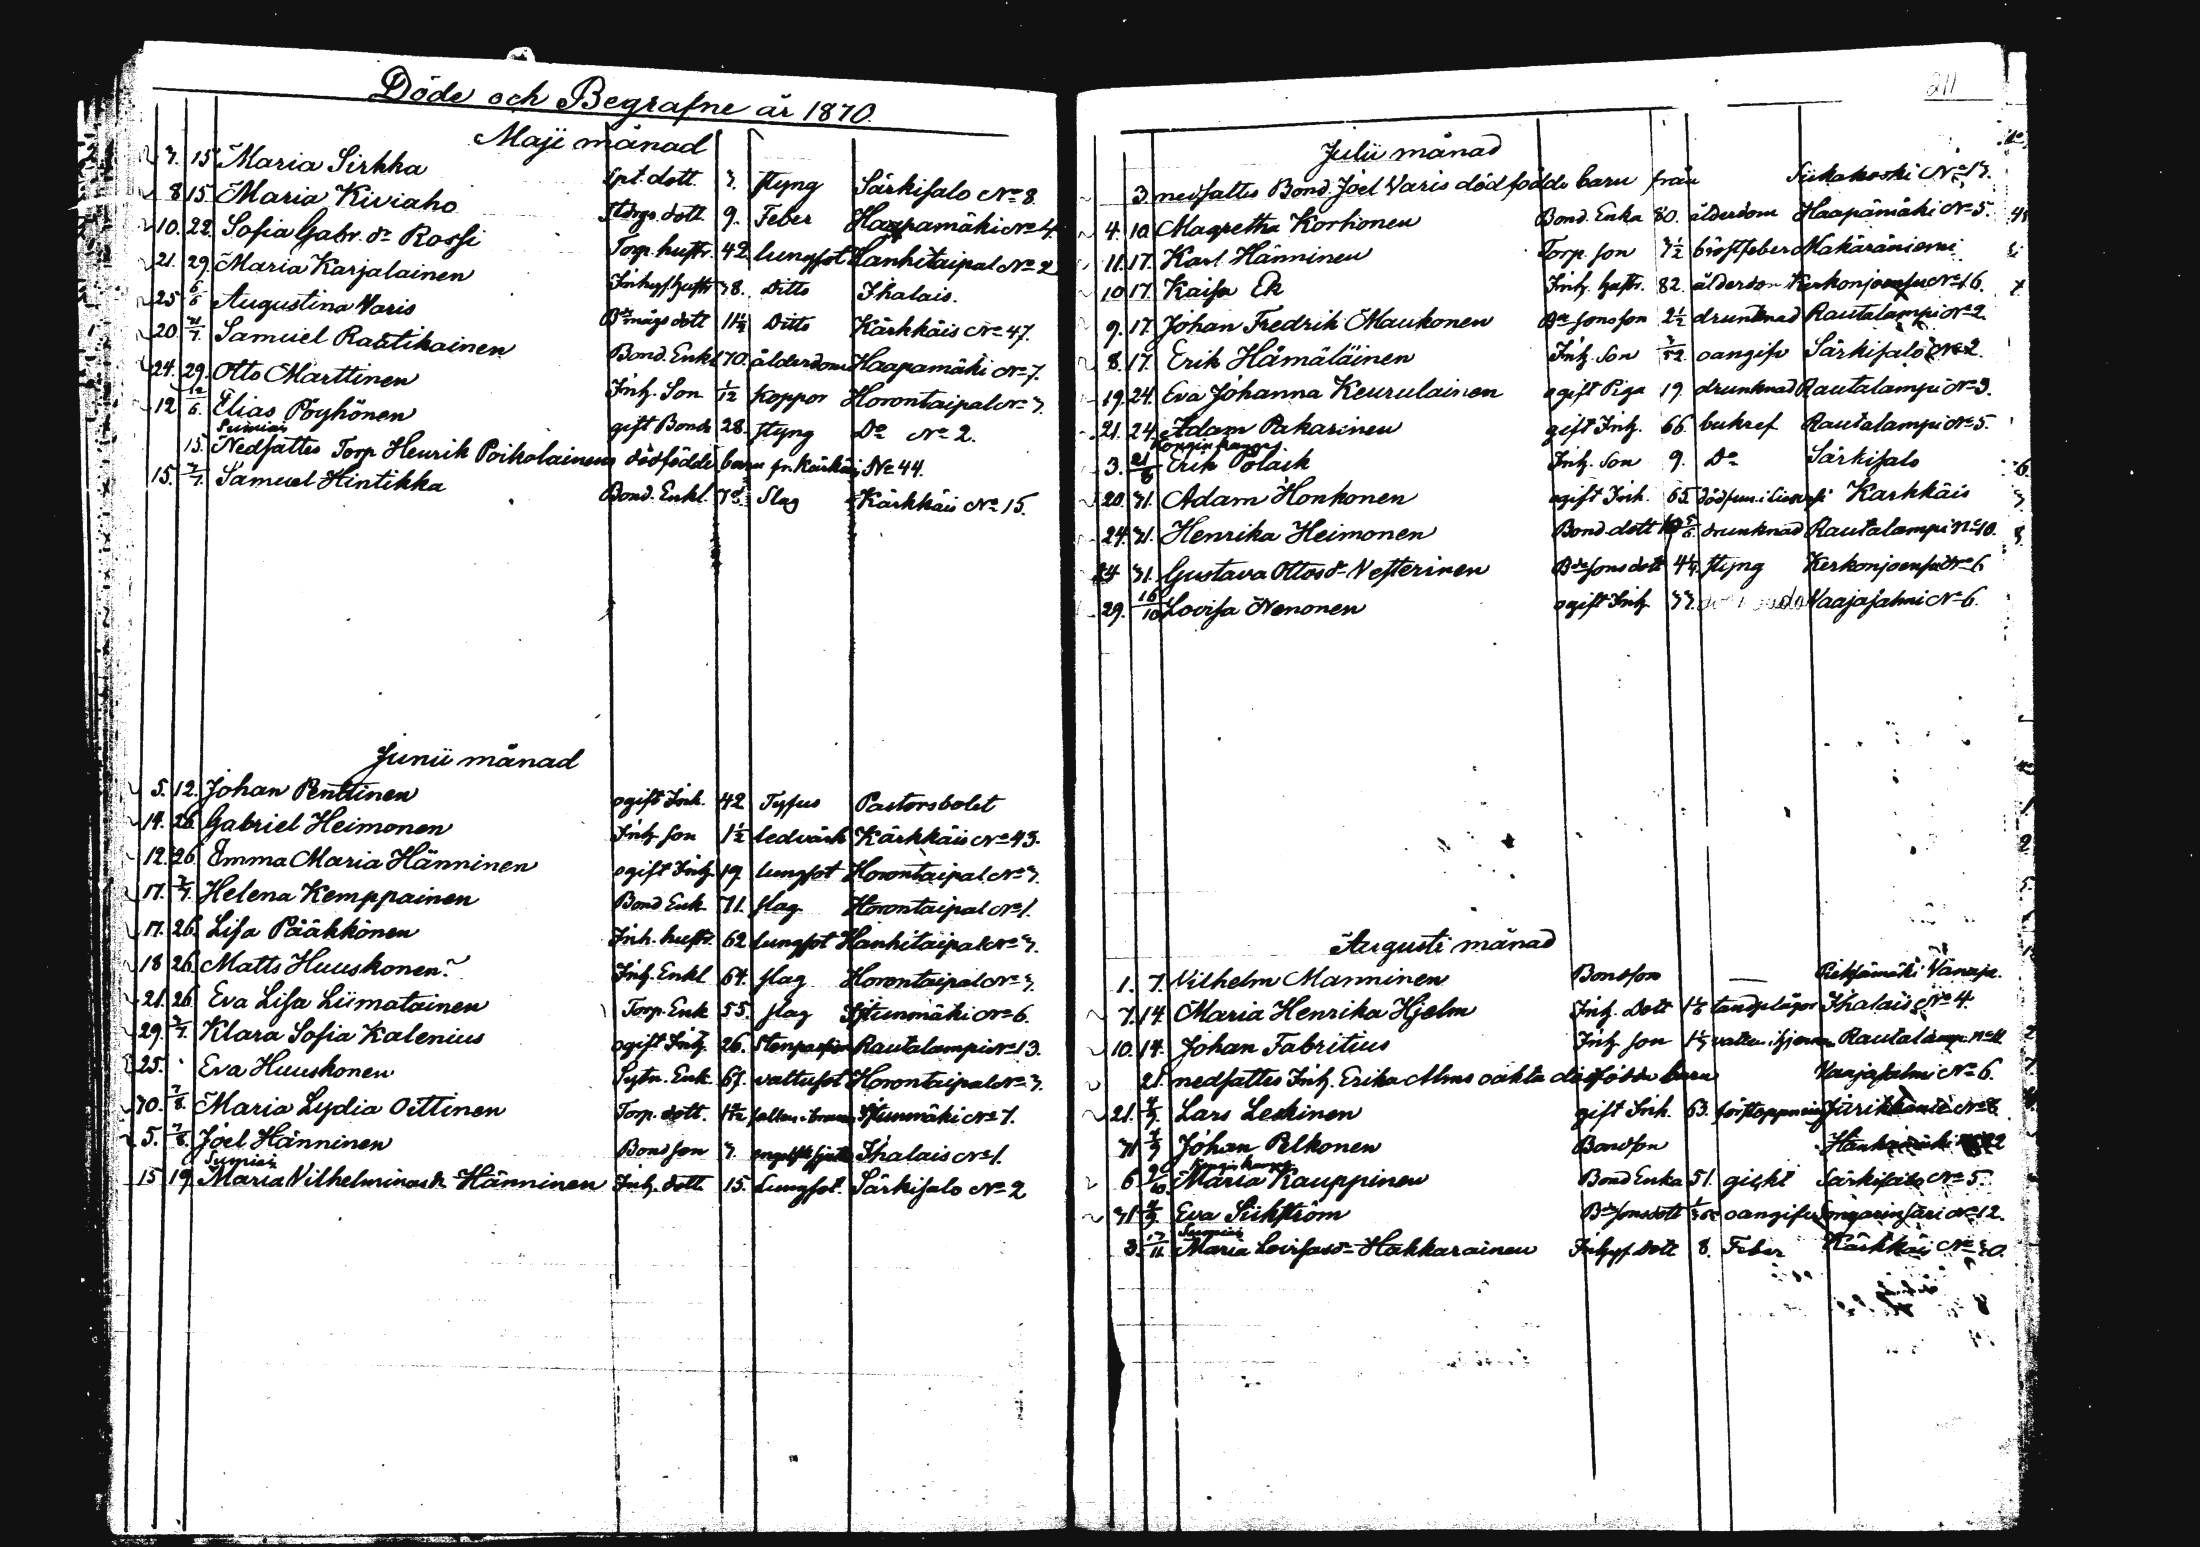 Döde och Begrafne år 1870.
Maji månad
3. 15 Maria Sirkka Spt. dott. 3. styng Särkisalo No 8.
8 15. Maria Kiviaho dott. 9. Feber Haapamäki No 4
10. 22. Sofia Gabr. dr Rossi Torp. hustr. 42 lungsot Hanhitaipal No 2
21. 29. Maria Karjalainen 38. Ditto Ihalais.
25 6/6 Augustina Varis dott 11 1/2 Ditto Kärkkäis No 47.
20 Samuel Rautikainen Bond. Enkl 70. ålderdom Haapamäki No 7.
24. 29. Otto Marttinen Inh. Son 1/12 koppor Horontaipal No 3.
12 12/6. Elias Pöyhönen gift Bonde 28. styng Do No 2.
Sumiais
15. Nedsattes Torp Henrik Poikolainens dödfödde barn fr. Kärkäis No 44.
15. Samuel Hintikka Bond. Enkl. Slag Kärkkäis No 15.
Junii månad
5. 12. Johan Penttinen ogift Inh. 42 Tyfus Pastorsbolet
14. 26 Gabriel Heimonen Inh. son 1 1/2 ledvärk Kärkkäis No 43.
12 26. Emma Maria Hänninen ogift Inh. 19 lungsot Horontaipal No 3.
17. 3/7. Helena Kemppainen Bond Enk. 71. slag Horontaipal No 1.
17. 26. Lisa Pääkkönen Inh. hustr. 62 lungsot Hanhitaipal No 3.
18 26. Matts Huuskonen Inh. Enkl 64. slag Horontaipal No 3.
21. 26 Eva Lisa Liimatainen Torp. Enk 55. slag No 6.
29. 3/7. Klara Sofia Kalenius ogift Inh. 26. Stenpassion Rautalampi No 13.
25. Eva Huuskonen Sytn. Enk 67. vattusot Horontaipal No 3.
30. 7/8. Maria Lydia Oittinen Torp. dott. No 7.
5. 7/8. Joel Hänninen Bondson 3. Ihalais No 1.
Sumiais
15 19 Maria Vilhelminas dr Hänninen Inh. dott. 15. Lungsot. Särkisalo No 2
211
Julii månad
3. nedsattes Bond. Joel Varis dödfödde barn från Siikakoski No 13.
4. 10. Magretha Korhonen Bond. Enka 80. ålderdom Haapamäki No 5.
11. 17. Karl Hänninen Torp. son 3 1/2 bröstfeber Makäräniemi
10 17. Kaisa Ek Inh. hustr. 82. ålderdom Kerkonjoensu No 16.
9. 17. Johan Fredrik Maukonen sonson 2 1/2 drunknad Rautalampi No 2.
8. 17. Erik Hämäläinen Inh. Son 3/52 oangifv Särkisalo No 2.
19. 24. Eva Johanna Keurulainen ogift Piga 19. drunknad Rautalampi No 3.
21. 24. Adam Pakarinen gift Inh. 66. bukref Rautalampi No 5.
Kongin kangas
3. 21/8 Erik Polack Inh. Son 9. Do Särkisalo
20. 31. Adam Honkonen ogift Inh. 65. Karkkäis
24. 31. Henrika Heimonen Bond. dott drunknad Rautalampi No 10.
24 31. Gustava Ottos dr Vesterinen sonsdott styng Kerkonjoensu No 6
29. 16/10 Lovisa Nenonen ogift Inh. 33. Vaajasalmi No 6.
Augusti månad
1. 7. Vilhelm Manninen Bondson — Pieksämäki Vänaja.
7. 14. Maria Henrika Hjelm Inh. Dott tandplågor Ihalais No 4.
10. 14. Johan Fabritius Inh. son vatten i hjernan Rautalampi No 11
21. nedsattes Inh. Erika Alms oäkta dödfödda barn Vaajasalmi No 6.
21. 4/9. Lars Leskinen gift Inh. 63. No 8.
31 4/9 Johan Pelkonen Bondson
Kongin kangas
6 Maria Kauppinen Bond Enka 51. gickt Särkisalo No 5.
31 4/9. Eva Sikström sonsdott oangifv Songarinsari No 12.
Sumiais
3. 13/11 Maria Lovisas dr Hakkarainen dott 8. Feber Kärkkäis No 30.